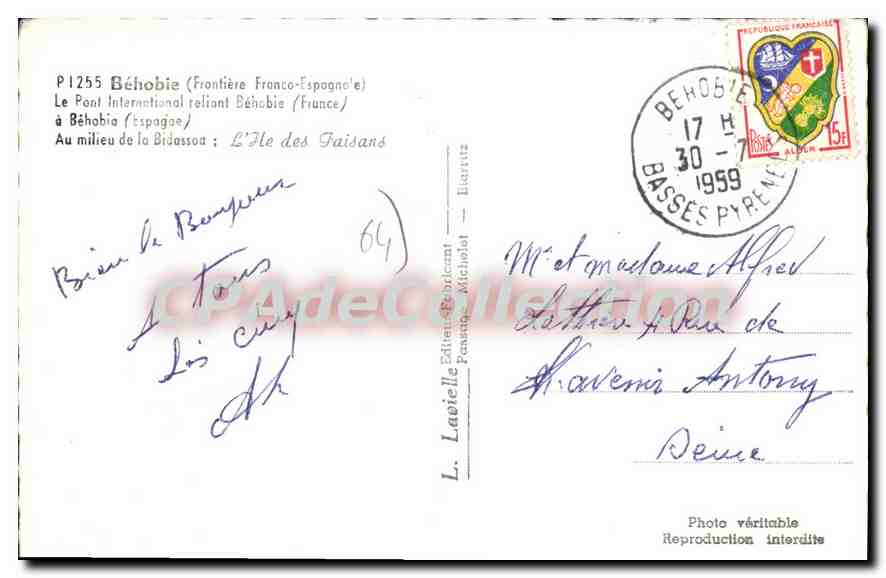 P1255 Béhobie (Frontière Franco-Espagnole)
Le Pont International reliant Béhobie (France)
à Béhobia (Espagne)
Au milieu de la Bidassoa : L'Ile des Faisans
Bien le Bonjour
A tous
Les cinq
64
L. Lavielle Editeur-Fabricant —
Passage Michelet — Biarritz
REPUBLIQUE FRANÇAISE
POSTES
ALGER
15F
BEHOBIE
17 H
30 - 7
1959
BASSES PYRENEES
Mr et madame Alfred
4 Rue de
L'avenir Antony
Seine
CPAdeCollection
Photo véritable
Reproduction interdite